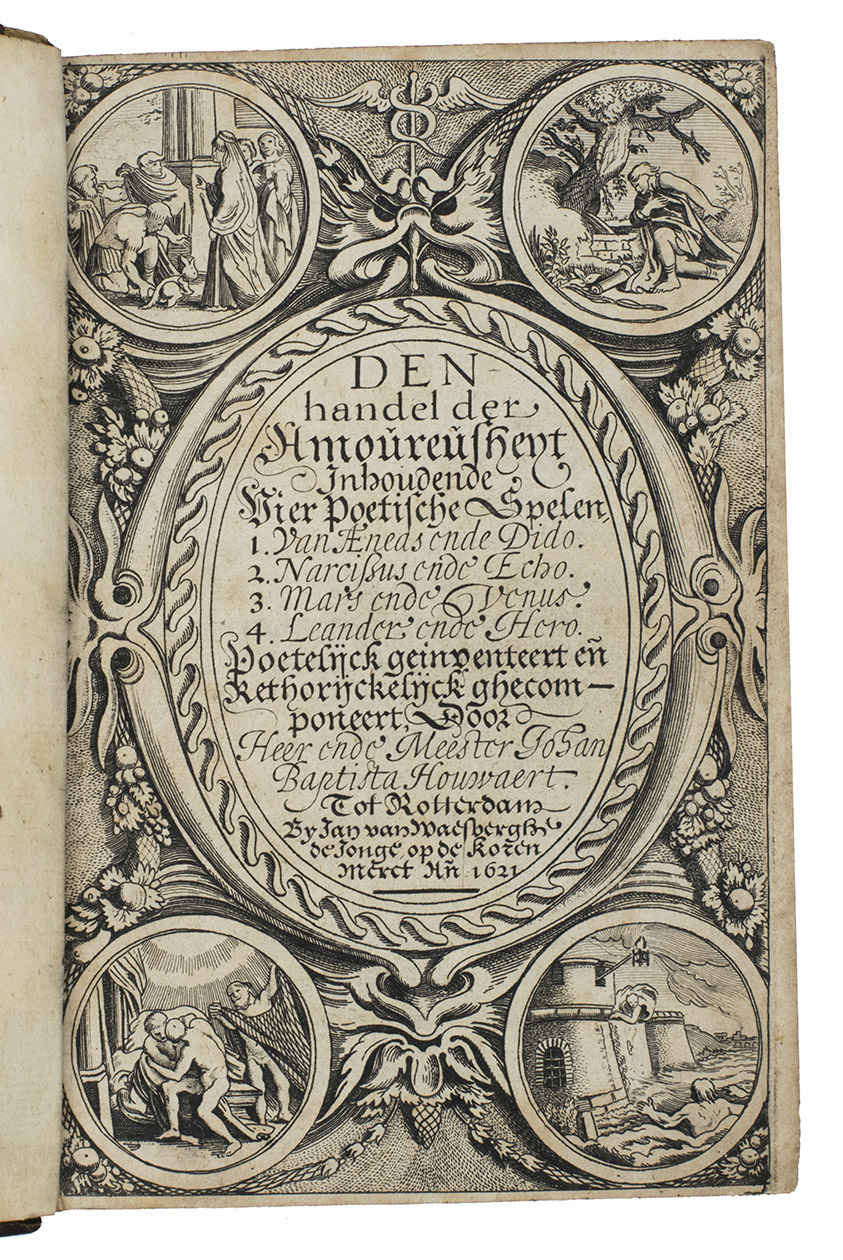 DEN
handel der
Amoŭreŭsheyt
Inhoudende
Vier Poetische Spelen,
1. Van Æneas ende Dido.
2. Narcissus eñde Echo.
3. Mars ende Venus.
4. Leander ende Hero.
Poetelijck geinventeert eñ
Rethorijckelijck ghecom—
poneert, Door
Heer ende Meester Johan
Baptista Houwaert.
Tot Rotterdam
By Jan van Waesberghe
de Jonge op de Koren
Merct Añ 1621